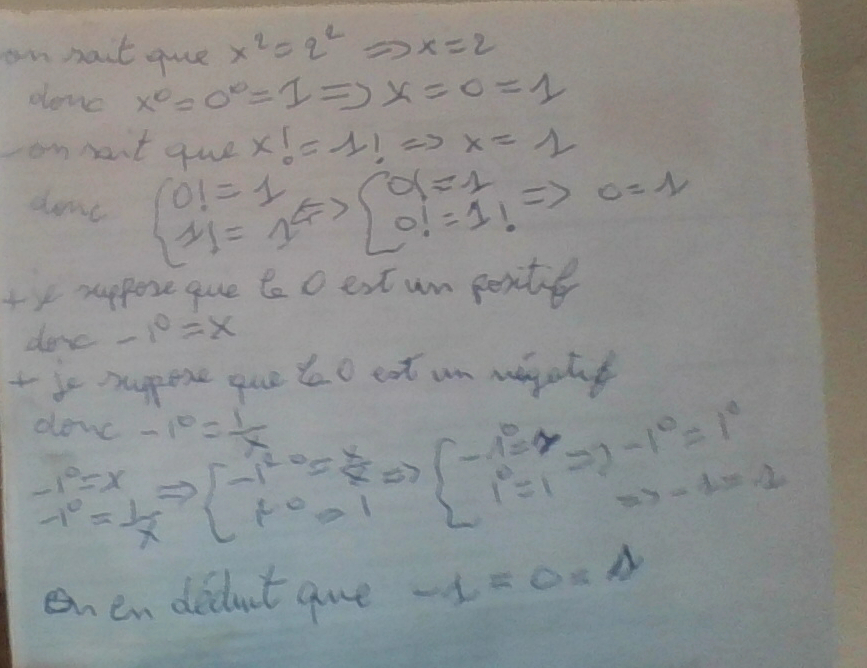 on sait que x² = 2² => x = 2
donc x⁰ = 0⁰ = 1 => x = 0 = 1
- on sait que x! = 1! => x = 1
donc { 0! = 1 <=> { 0! = 1 => 0 = 1
1! = 1 0! = 1!
+ je suppose que le 0 est un positif
donc -1⁰ = x
+ je suppose que le 0 est un négatif
donc -1⁰ = 1/x
-1⁰ = x => { => { => -1⁰ = 1⁰
-1⁰ = 1/x 1⁰ = 1 => -1 = 1
On en déduit que -1 = 0 = 1